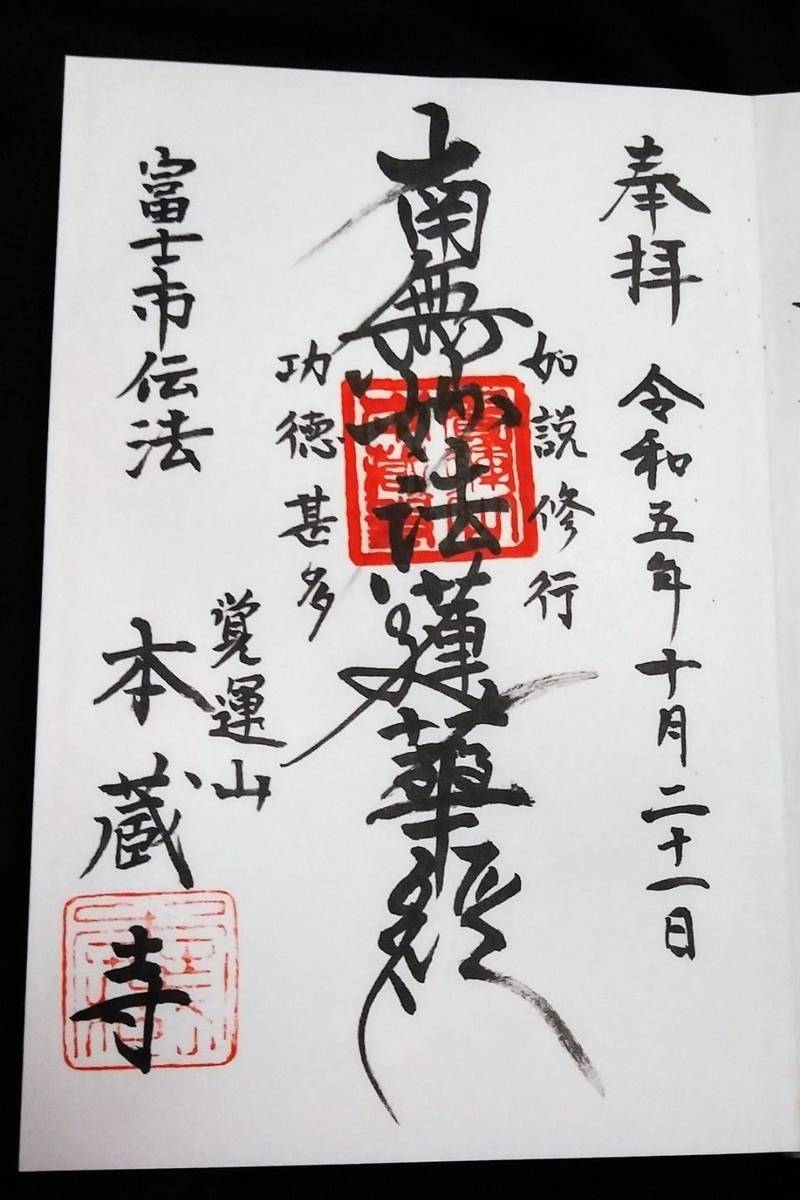 奉拝 令和五年十月二十一日
如説修行
南無妙法蓮華経
功徳甚多
覚運山
本蔵寺
富士市伝法